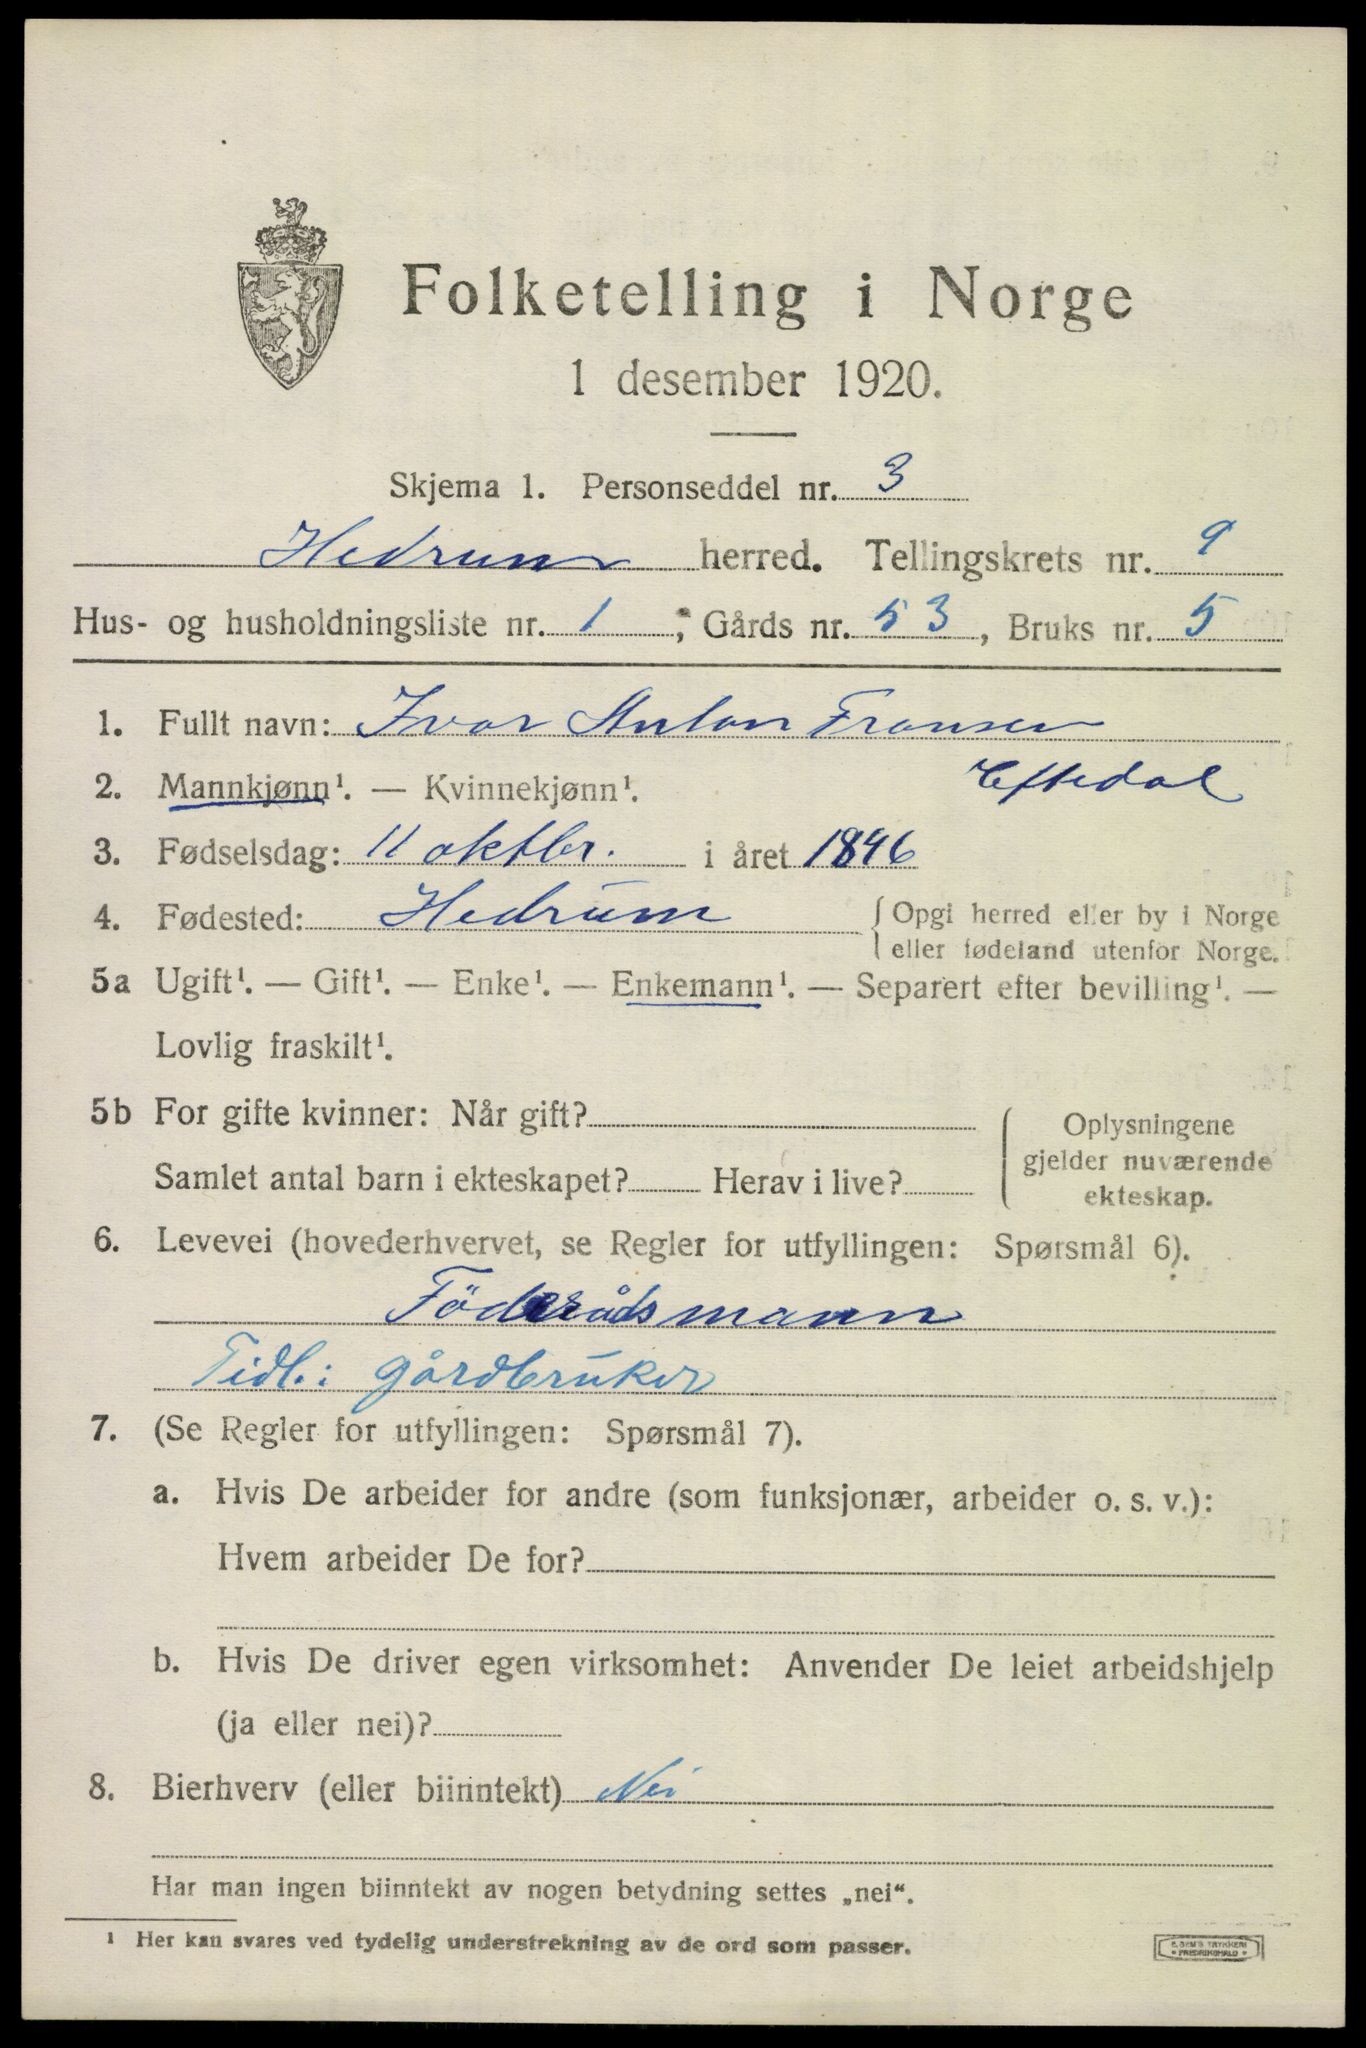 Folketelling i Norge
1 desember 1920.
Skjema 1. Personseddel nr. 3
Hedrum herred. Tellingskrets nr. 9
Hus- og husholdningsliste nr. 1; Gårds nr. 53, Bruks nr. 5
1. Fullt navn: Ivar Anton Fransen
Eftedal
2. Mannkjønn¹. — Kvinnekjønn¹.
3. Fødselsdag: 11 oktbr. i året 1846
4. Fødested: Hedrum {Opgi herred eller by i Norge
eller fødeland utenfor Norge.
5a Ugift¹. — Gift¹. — Enke¹. — Enkemann¹. — Separert efter bevilling¹. —
Lovlig fraskilt¹.
5b For gifte kvinner: Når gift?
Samlet antal barn i ekteskapet? Herav i live?
Oplysningene
gjelder nuværende
ekteskap.
6. Levevei (hovederhvervet, se Regler for utfyllingen: Spørsmål 6).
Föderådsmann
Tidl.: gårdbruker
7. (Se Regler for utfyllingen: Spørsmål 7).
a. Hvis De arbeider for andre (som funksjonær, arbeider o. s. v.):
Hvem arbeider De for?
b. Hvis De driver egen virksomhet: Anvender De leiet arbeidshjelp
(ja eller nei)?
8. Bierhverv (eller biinntekt) Nei
Har man ingen biinntekt av nogen betydning settes „nei“.
¹ Her kan svares ved tydelig understrekning av de ord som passer.